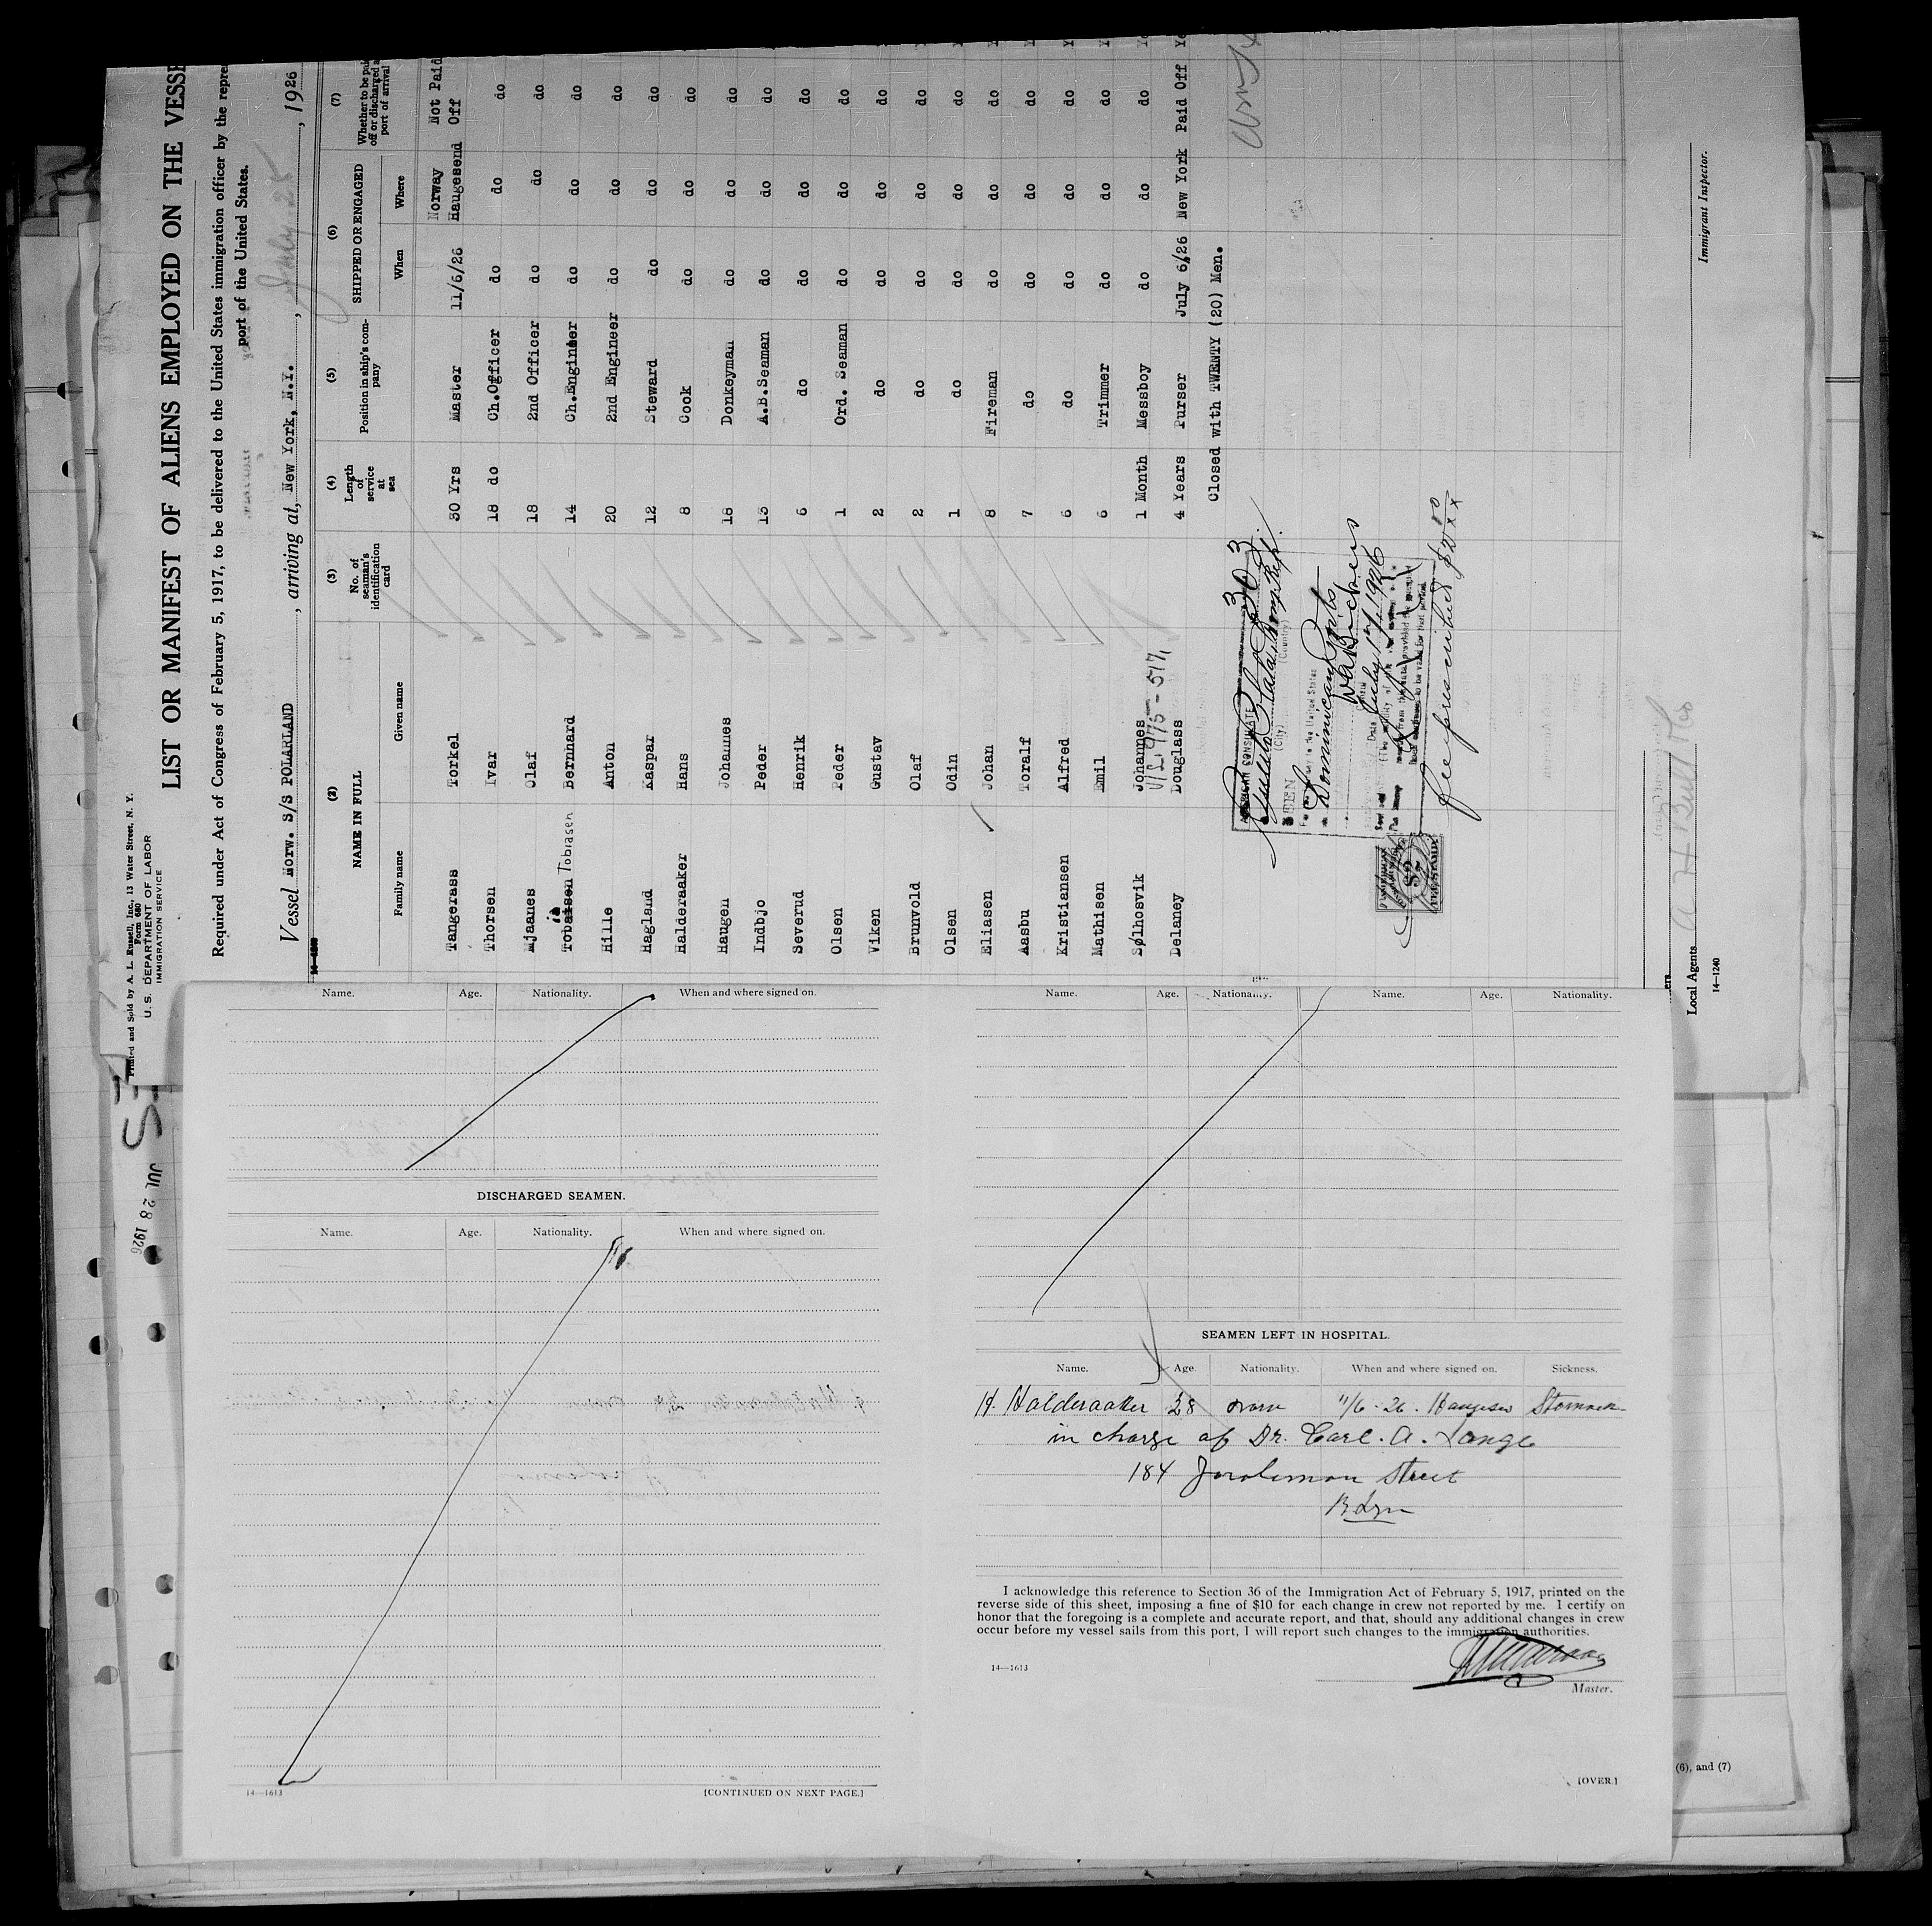 Printed and Sold by A. L. Russell, Inc., 13 Water Street, N. Y.
Form 680
U. S. DEPARTMENT OF LABOR
IMMIGRATION SERVICE
LIST OR MANIFEST OF ALIENS EMPLOYED ON THE VESSE
Required under Act of Congress of February 5, 1917, to be delivered to the United States immigration officer by the repre
port of the United States.
Vessel Norw. S/S POLARLAND, arriving at, New York, N.Y., July 25, 1926
(2) (3) (4) (5) (6) (7)
NAME IN FULL No. of seaman's identification card Length of service at sea Position in ship's company SHIPPED OR ENGAGED Whether to be paid off or discharged a port of arrival
Family name Given name When Where
Tangerass Torkel 30 Yrs Master 11/6/26 Norway Haugesend Not Paid Off
Thorsen Ivar 18 do Ch.Officer do do do
Mjaanes Olaf 18 2nd Officer do do do
Tobaisen Tobiasen Bernhard 14 Ch.Engineer do do do
Hille Anton 20 2nd Engineer do do do
Hagland Kaspar 12 Steward do do do
Halderaaker Hans 8 Cook do do do
Haugen Johannes 18 Donkeyman do do do
Indbjo Peder 13 A.B.Seaman do do do
Severud Henrik 6 do do do do
Olsen Peder 1 Ord. Seaman do do do
Viken Gustav 2 do do do do
Brunvold Olaf 2 do do do do
Olsen Odin 1 do do do do
Eliasen Johan 8 Fireman do do do
Aasbu Toralf 7 do do do do
Kristiansen Alfred 6 do do do do
Mathisen Emil 6 Trimmer do do do
Sølhosvik Johannes 1 Month Messboy do do do
Delaney Douglass 4 Years Purser July 6/26 New York Paid Off Ye
Closed with TWENTY (20) Men.
AMERICAN CONSULATE
(City) (Country)
SEEN
July 17, 1926
Fee prescribed $2.00
A H Bull & Co
Local Agents
14—1240
Immigrant Inspector.
JUL 28 1926
Name. Age. Nationality. When and where signed on.
DISCHARGED SEAMEN.
Name. Age. Nationality. When and where signed on.
14—1613
[CONTINUED ON NEXT PAGE.]
Name. Age. Nationality. Name. Age. Nationality.
SEAMEN LEFT IN HOSPITAL.
Name. Age. Nationality. When and where signed on. Sickness.
H. Halderaaker 28 norw 11/6-26. Haugesu Stomach
in charge of Dr. Carl. A. Lange
184 Joralemon Street
Bklyn
I acknowledge this reference to Section 36 of the Immigration Act of February 5, 1917, printed on the
reverse side of this sheet, imposing a fine of $10 for each change in crew not reported by me. I certify on
honor that the foregoing is a complete and accurate report, and that, should any additional changes in crew
occur before my vessel sails from this port, I will report such changes to the immigration authorities.
14—1613
Master.
[OVER.]
(6), and (7)